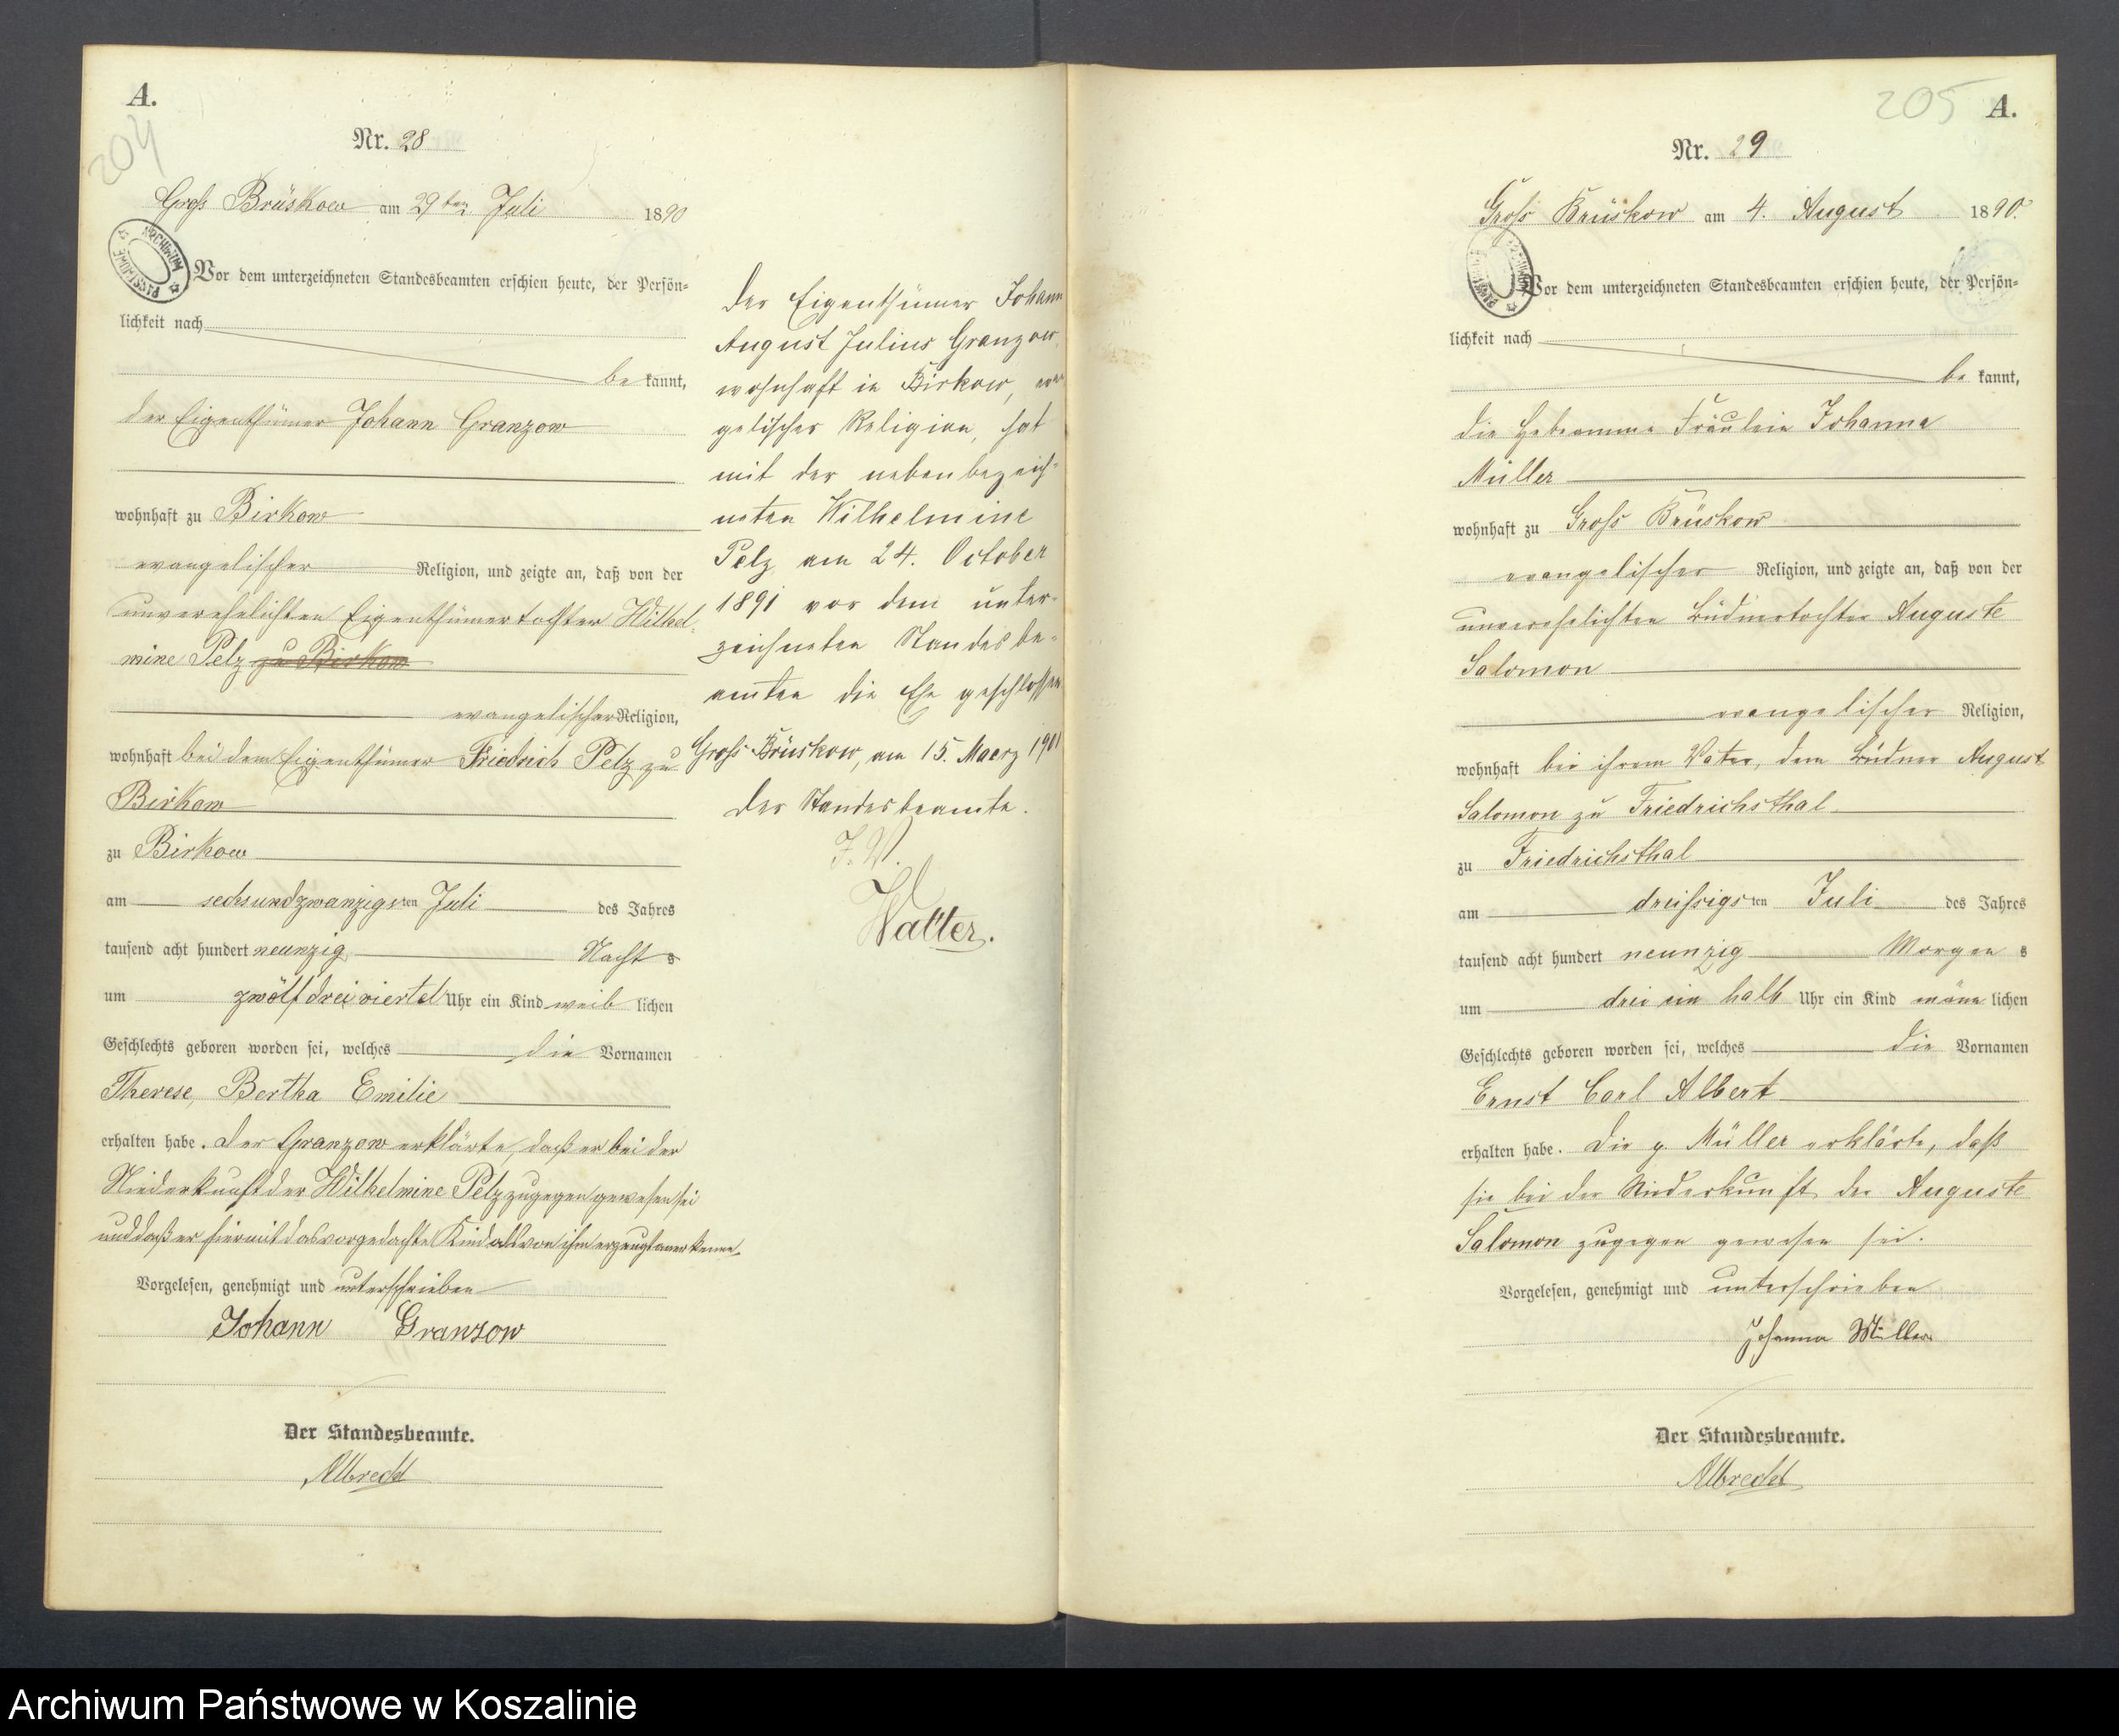 A.
204
Nr. 28
Gross Brüskow am 29ten Juli 1890
ARCHIWUM PAŃSTWOWE
Vor dem unterzeichneten Standesbeamten erschien heute, der Persön-
lichkeit nach
be kannt,
der Eigenthümer Johann Granzow
wohnhaft zu Birkow
evangelischer Religion, und zeigte an, daß von der
unverehelichten Eigenthümertochter Wilhel-
mine Pelz zu Birkow
evangelischer Religion,
wohnhaft bei dem Eigenthümer Friedrich Pelz zu
Birkow
zu Birkow
am sechsundzwanzigsten Juli des Jahres
tausend acht hundert neunzig Nacht s
um zwölf dreiviertel Uhr ein Kind weib lichen
Geschlechts geboren worden sei, welches die Vornamen
Therese, Bertha Emilie
erhalten habe. Der Granzow erklärte, daß er bei der
Niederkunft der Wilhelmine Pelz zugegen gewesen sei
und daß er hiermit das vorgedachte Kind als von ihm erzeugt anerkenne.
Vorgelesen, genehmigt und unterschrieben
Johann Granzow
Der Standesbeamte.
Albrecht
Der Eigenthümer Johann
August Julius Granzow,
wohnhaft in Birkow, evan
gelischer Religion, hat
mit der nebenbezeich-
neten Wilhelmine
Pelz am 24. October
1891 vor dem unter-
zeichneten Standesbe-
amten die Ehe geschlossen
Gross Brüskow, am 15. Maerz 1901
Der Standesbeamte.
J. V.
Walter.
205 A.
Nr. 29
Gross Brüskow am 4. August 1890.
Vor dem unterzeichneten Standesbeamten erschien heute, der Persön-
lichkeit nach
be kannt,
die Hebeamme Fräulein Johanna
Müller
wohnhaft zu Gross Brüskow
evangelischer Religion, und zeigte an, daß von der
unverehelichten Büdnertochter Auguste
Salomon
evangelischer Religion,
wohnhaft bei ihrem Vater, dem Büdner August
Salomon zu Friedrichsthal
zu Friedrichsthal
am dreissigsten Juli des Jahres
tausend acht hundert neunzig Morgen s
um drei ein halb Uhr ein Kind männ lichen
Geschlechts geboren worden sei, welches die Vornamen
Ernst Carl Albert
erhalten habe. Die p. Müller erklärte, daß
sie bei der Niederkunft der Auguste
Salomon zugegen gewesen sei.
Vorgelesen, genehmigt und unterschrieben
Johanna Müller
Der Standesbeamte.
Albrecht
Archiwum Państwowe w Koszalinie